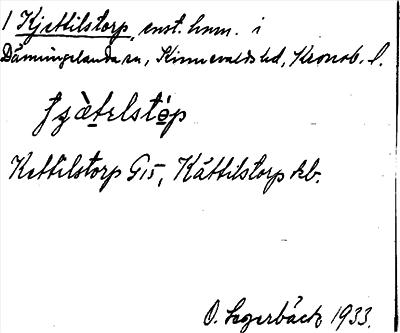 1 Kjettilstorp, enst. hmn. i
Dänningelanda sn, Kinnevalds hd, Kronob. l.
Kettilstorp G15, Kättilstorp kb.
O. Segerbäck 1933.